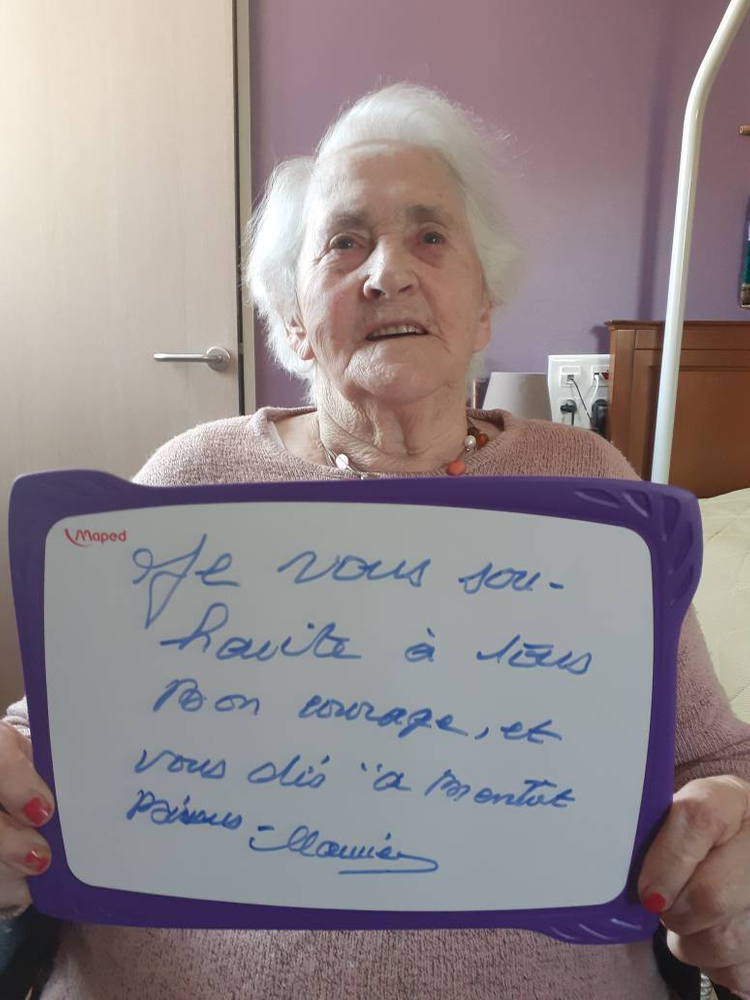 Maped
Je vous sou-
haite à tous
Bon courage, et
vous dis "a Bientôt
Bisous - Mamie